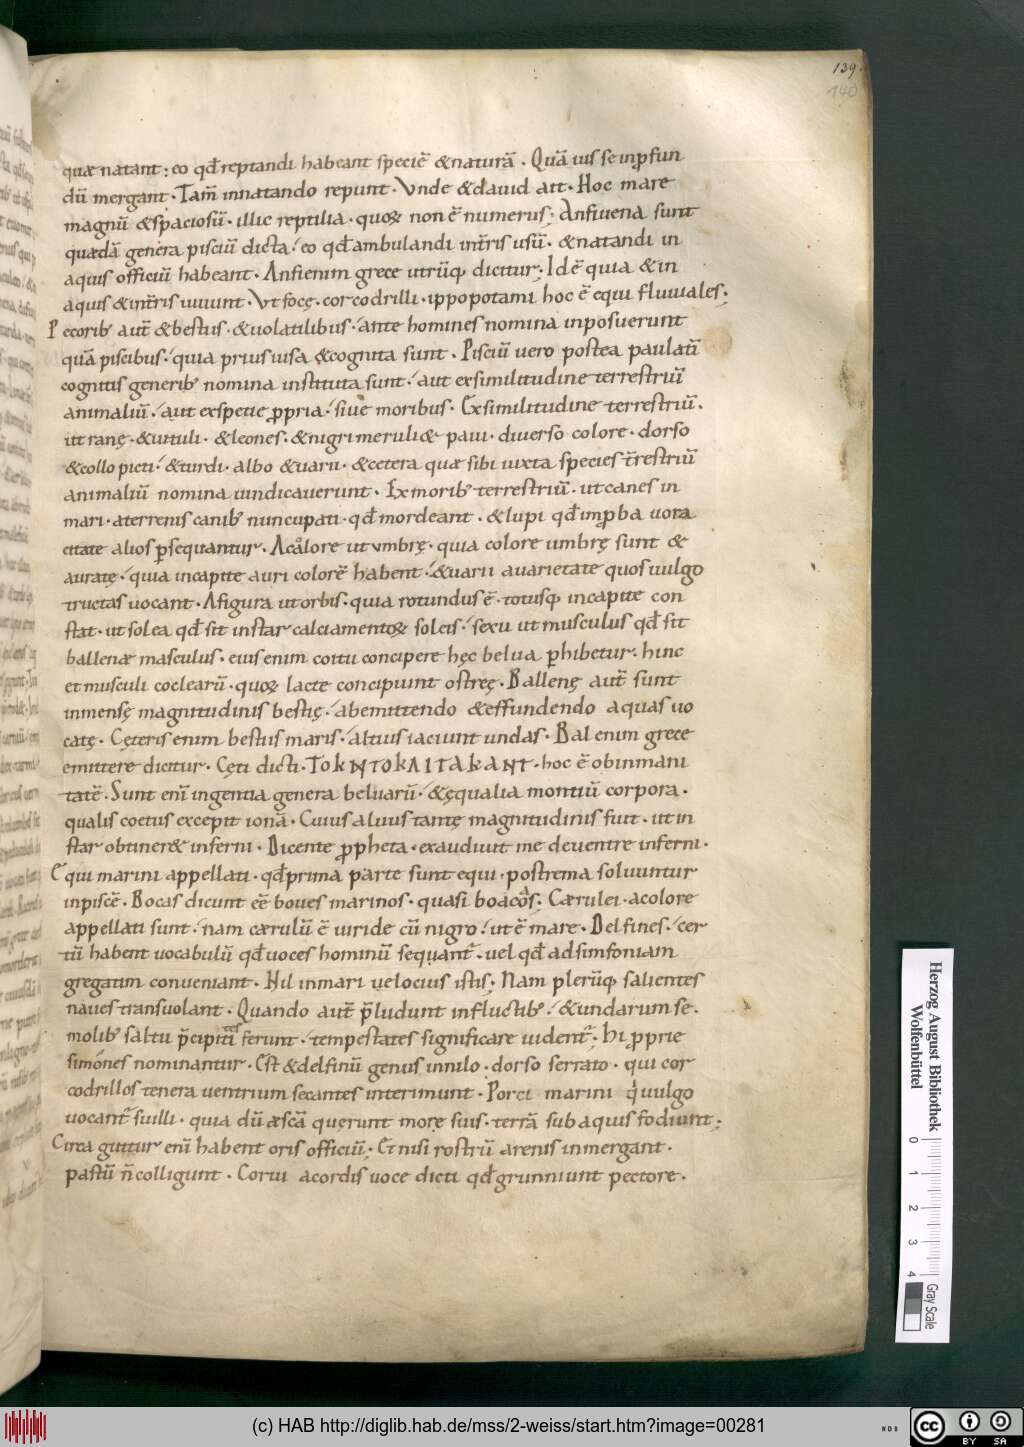 139.
140
quæ natant; eo qđ reptandi habeant speciē & naturā. Quā uis se inp̱fun
dū mergant. Tam̄ innatando repunt. Vnde & dauid ait. Hoc mare
magnū & spaciosū. illic reptilia. quoꝝ non ē numerus; Anfiuena sunt
quædā genera pisciū dicta. eo qđ ambulandi int̄ris usū. & natandi in
aquis officiū habeant. Anfienim grece utrūq; dicitur; Id ē quia & in
aquis & int̄ris uiuunt. Vt focę. corcodrilli. ippopotami hoc ē equi fluuiales;
Pecorib; aut̄ & bestiis. & uolatilibus. ante homines nomina inposuerunt
quā piscibus. quia prius uisa & cognita sunt. Pisciū uero postea paulatī
cognitis generib; nomina instituta sunt. aut exsimilitudine terrestriū
animaliū. aut exspetie ꝓpria. siue moribus. Exsimilitudine terrestriū.
ut ranę. & uituli. & leones. & nigri meruli & paui. diuerso colore. dorso
& collo picti. & turdi. albo & uarii. & cetera quæ sibi iuxta species t̄restriū
animaliū nomina uindicauerunt. Ex morib; terrestriū. ut canes in
mari. aterrenis canib; nuncupati. qđ mordeant. & lupi qđ imꝓba uora
citate alios ꝑsequantur. Acalore ut vmbrę. quia colore umbrę sunt &
auratę. quia incapite auri colorē habent. & uarii auarietate quos uulgo
tructas uocant. Afigura ut orbis. quia rotundus ē. totusq; incapite con
stat. ut solea qđ sit instar calciamentoꝝ soleis. sexu ut musculus qđ sit
ballenæ masculus. eius enim coitu concipere hęc belua ꝑhibetur. hinc
et musculi coclearū. quoꝝ lacte concipiunt ostreę. Ballenę aut̄ sunt
inmensę magnitudinis bestię. abemittendo & effundendo aquas uo
catę. Cęteris enim bestiis maris. altius iaciunt undas. Bal enim grece
emittere dicitur. Cęti dicti. ΤΟΚΝΤΟΚΛΙΤΑΚΑΝΤ. hoc ē obinmani
tatē. Sunt enī ingentia genera beluarū. & ęqualia montiū corpora.
qualis coetus excepit ionā. Cuius aluus tantę magnitudinis fuit. ut in
star obtiner& inferni. Dicente ꝓpheta. exaudiuit me deuentre inferni.
Equi marini appellati. qđ prima parte sunt equi. postrema soluuntur
inpiscē. Bocas dicunt eē boues marinos. quasi boacos. Cærulei. acolore
appellati sunt. nam cærulū ē uiride cū nigro. ut ē mare. Delfines. cer
tū habent uocabulū qđ uoces hominū sequant̄. uel qđ adsimfoniam
gregatim conueniant. Nil inmari uelocius istis; Nam plerūq; salientes
naues transuolant. Quando aut̄ p̄ludunt influctib;. & undarum se.
molib; saltu p̄cipiti ferunt. tempestates significare uident̄. Hi ꝓprie
simones nominantur. Est & delfinū genus innilo. dorso serrato. qui cor
codrillos tenera uentrium secantes interimunt. Porci marini q̇ uulgo
uocant̄ suilli. quia dū æscā querunt more suis. terrā sub aquis fodiunt;
Circa guttur enī habent oris officiū; Et nisi rostrū arenis inmergant.
pastū n̄ colligunt. Corui acordis uoce dicti qđ grunniunt pectore.
Herzog August Bibliothek
Wolfenbüttel
0 1 2 3 4
Gray Scale
(c) HAB http://diglib.hab.de/mss/2-weiss/start.htm?image=00281
cc BY SA